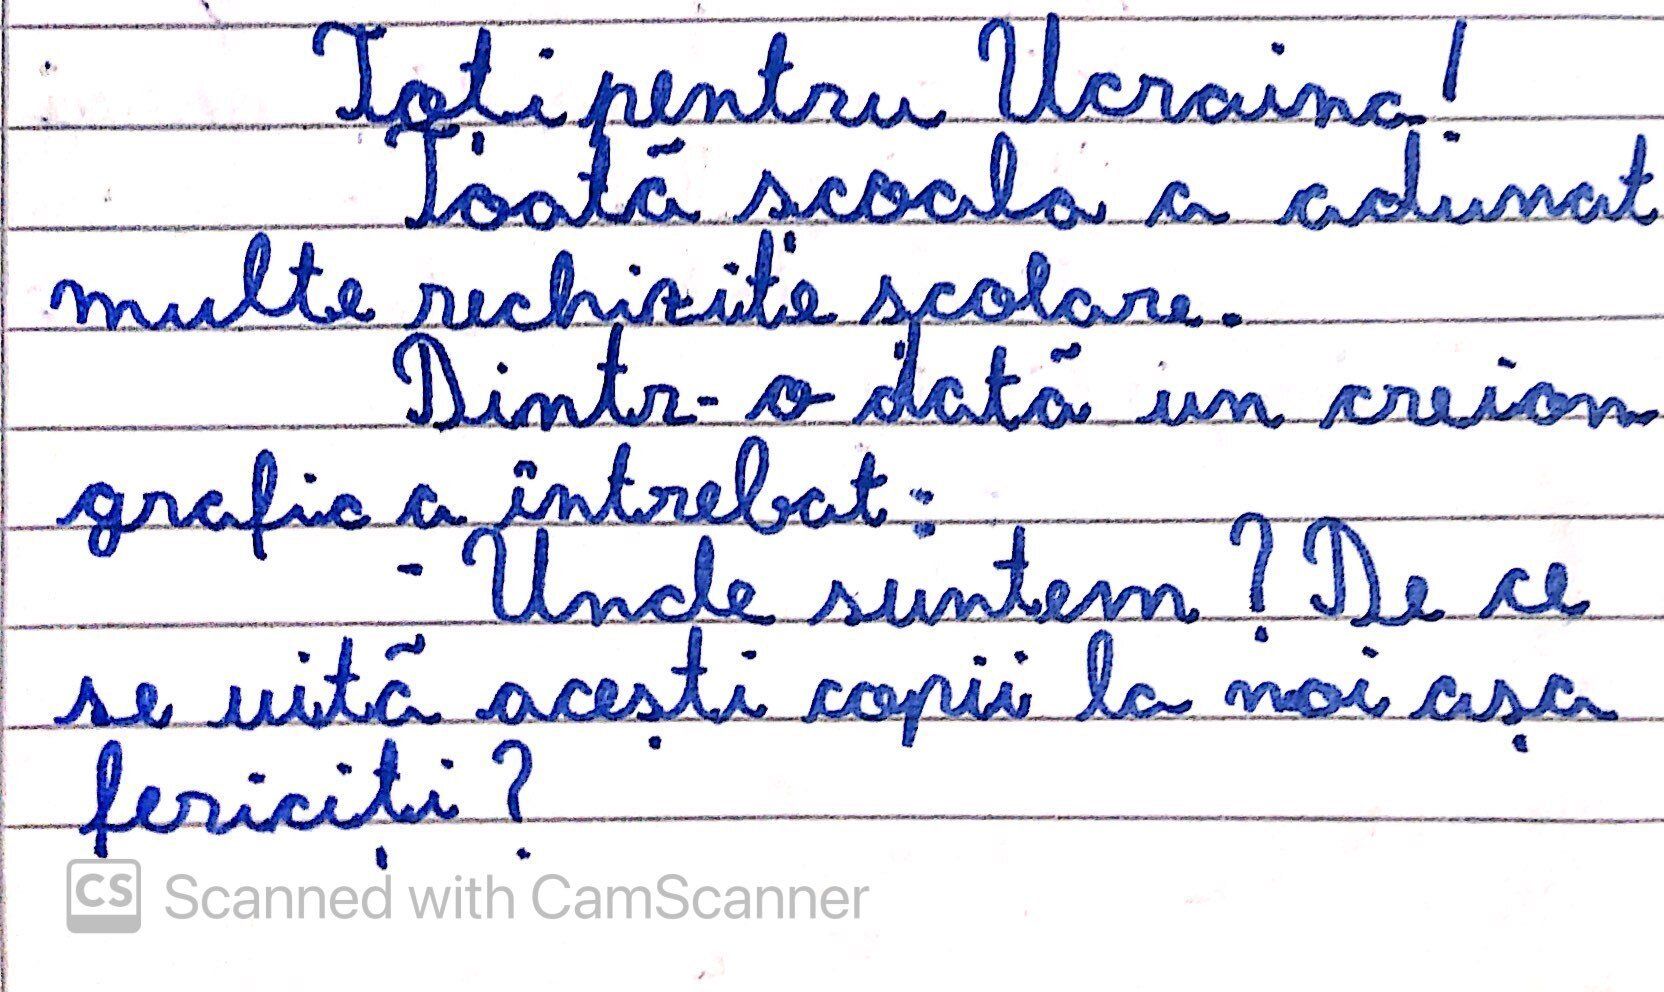 Toți pentru Ucraina!
Toată școala a adunat
multe rechizite școlare.
Dintr-o dată un creion
grafic a întrebat:
- Unde suntem? De ce
se uită acești copii la noi așa
fericiți?
CS Scanned with CamScanner